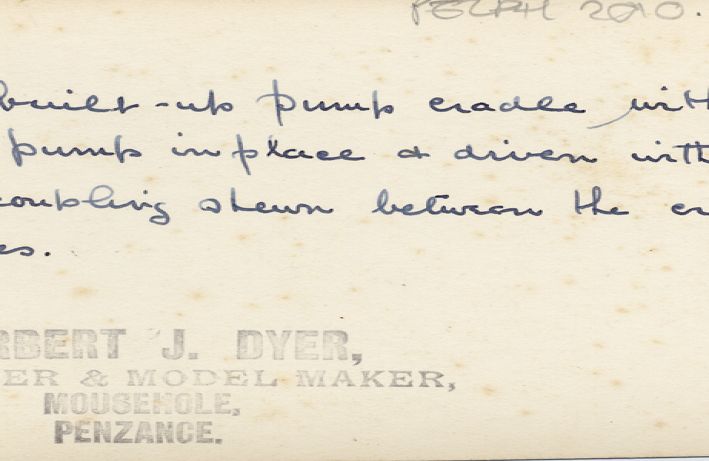 2010.
built-up pump cradle, with
pump in place & driven with
coupling shewn between the
es.
RBERT J. DYER,
ER & MODEL MAKER,
MOUSEHOLE,
PENZANCE.